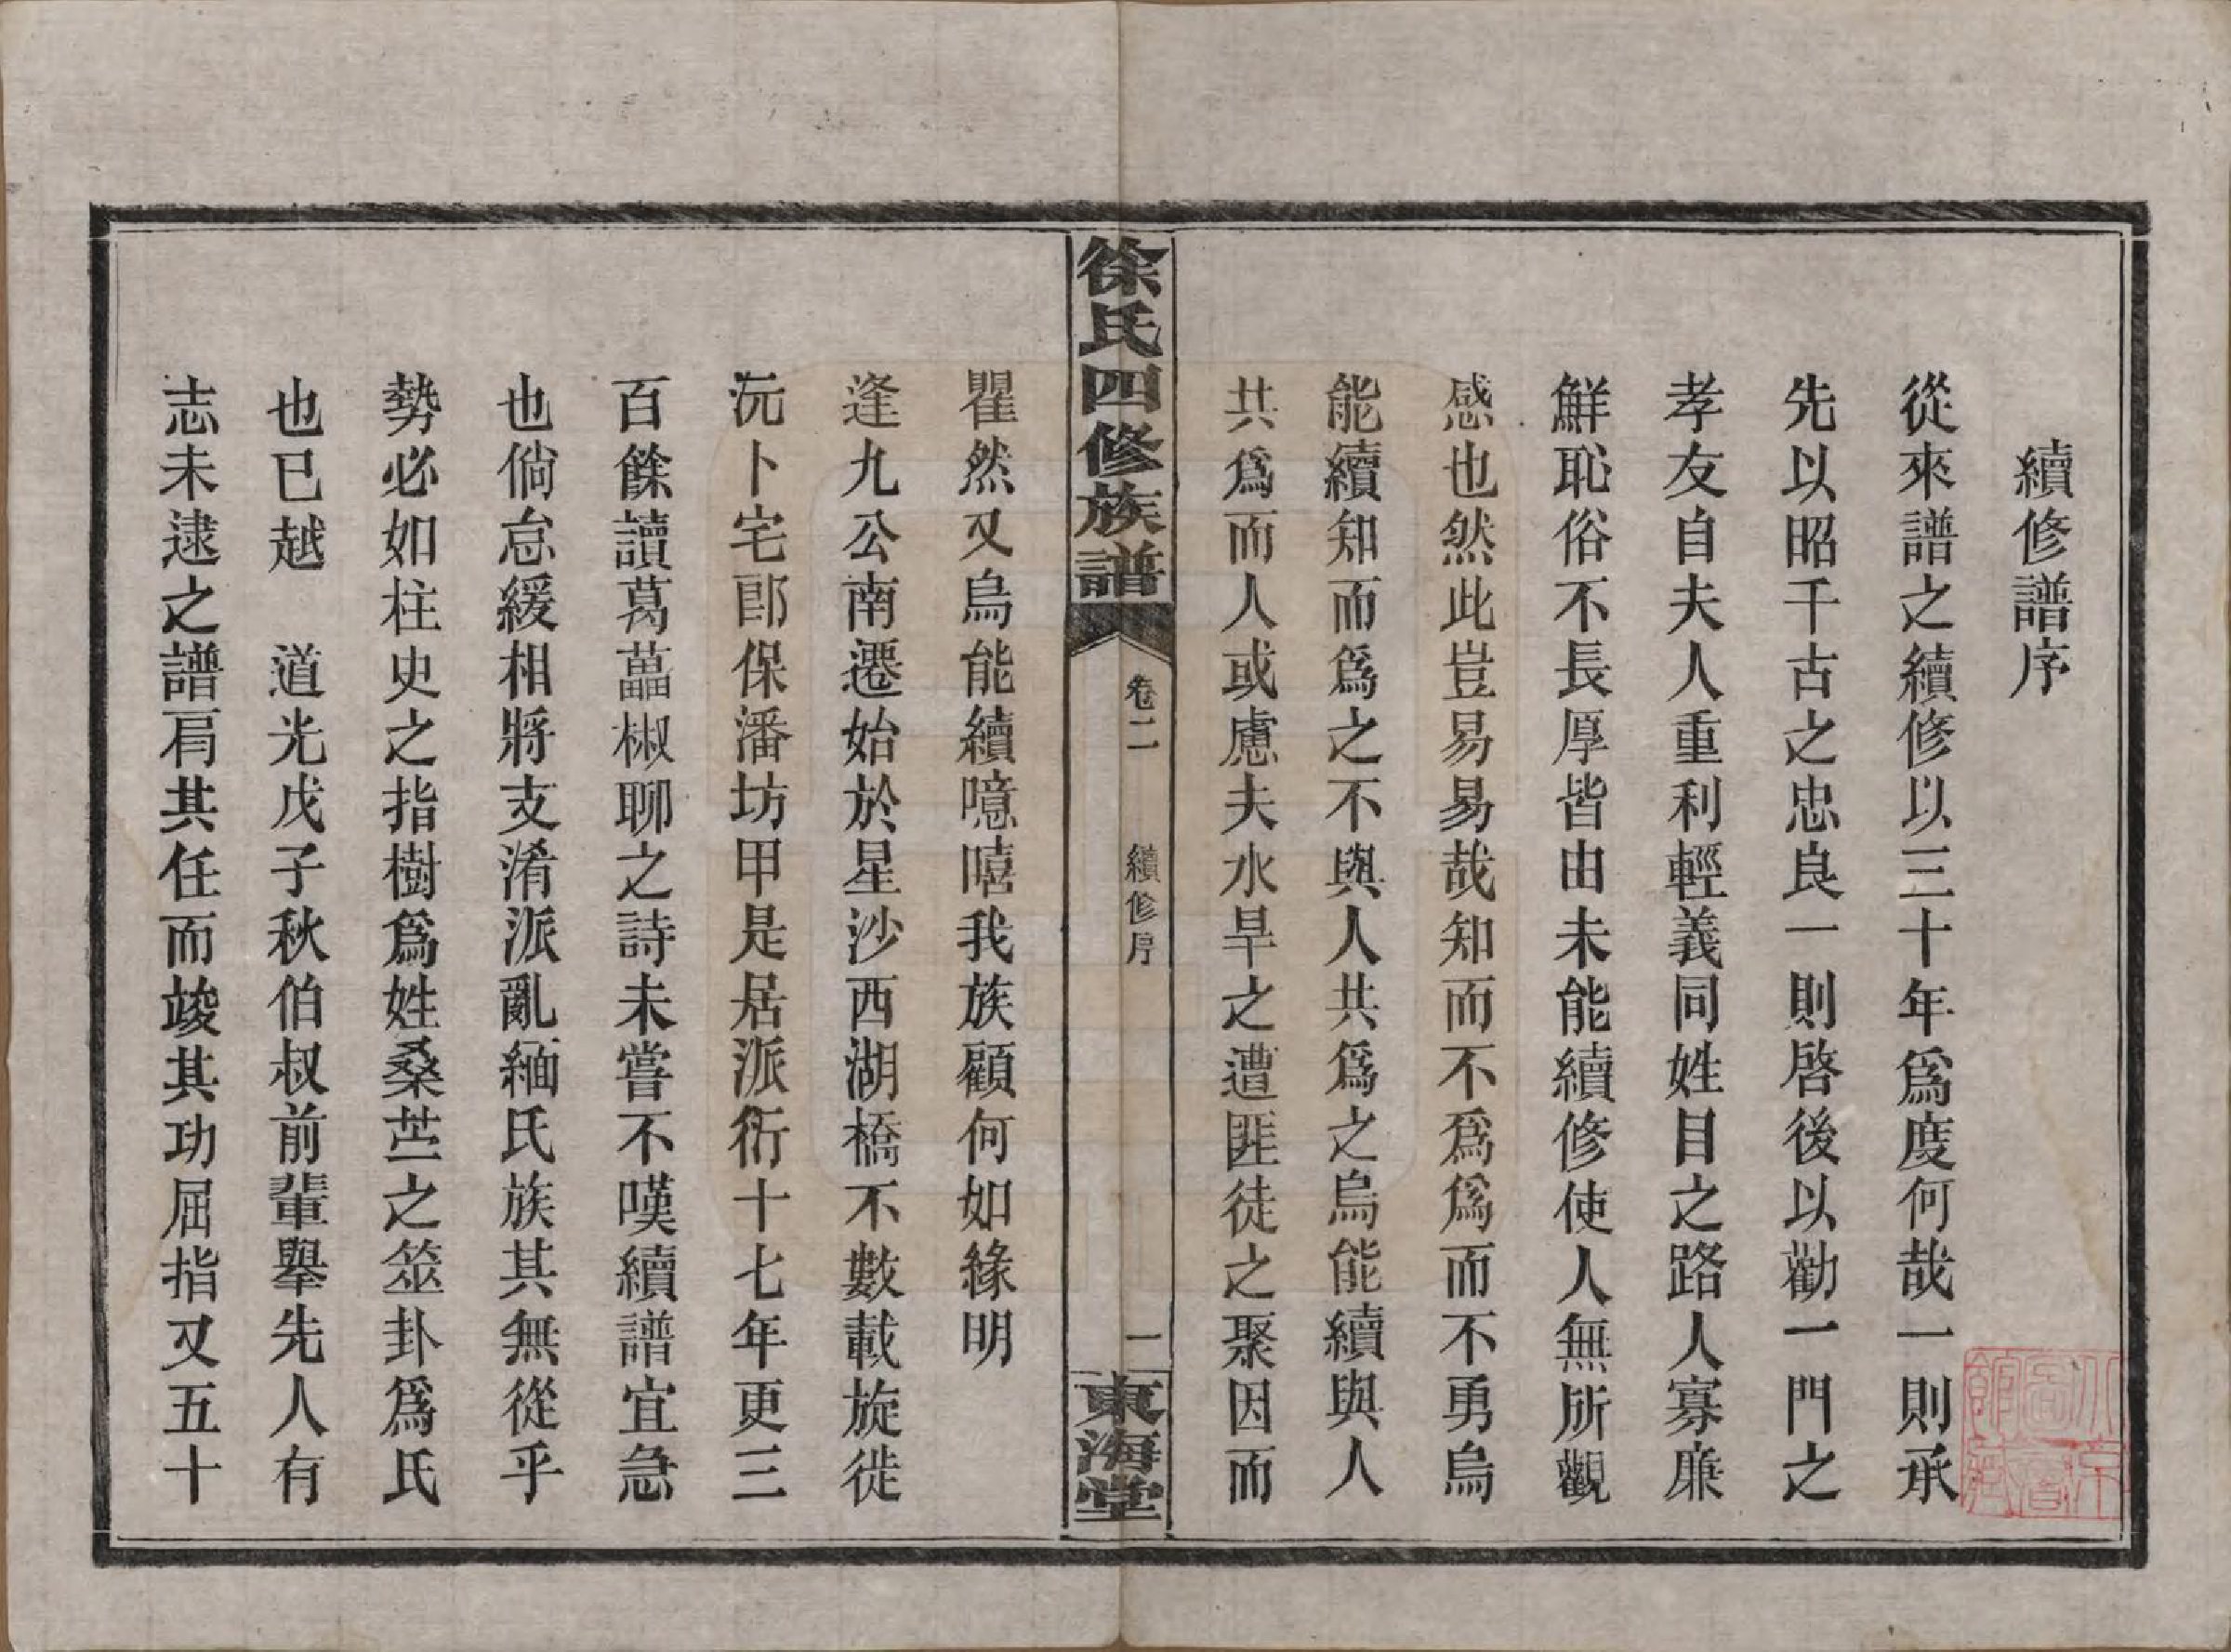 續修譜序
從來譜之續修以三十年爲度何哉一則承
先以昭千古之忠良一則啓後以勸一門之
孝友自夫人重利輕義同姓目之路人寡廉
鮮恥俗不長厚皆由未能續修使人無所觀
感也然此豈易易哉知而不爲爲而不勇烏
能續知而爲之不與人共爲之烏能續與人
共爲而人或慮夫水旱之遭匪徒之聚因而
徐氏四修族譜
卷二
續修序
一
東海堂
瞿然又烏能續噫嘻我族顧何如緣明
逢九公南遷始於星沙西湖橋不數載旋徙
沅卜宅郎保潘坊甲是居派衍十七年更三
百餘讀葛藟椒聊之詩未嘗不嘆續譜宜急
也倘怠緩相將支淆派亂緬氏族其無從乎
勢必如柱史之指樹爲姓桑苎之筮卦爲氏
也已越　道光戊子秋伯叔前輩舉先人有
志未逮之譜肩其任而竣其功屈指又五十
京師圖書館藏